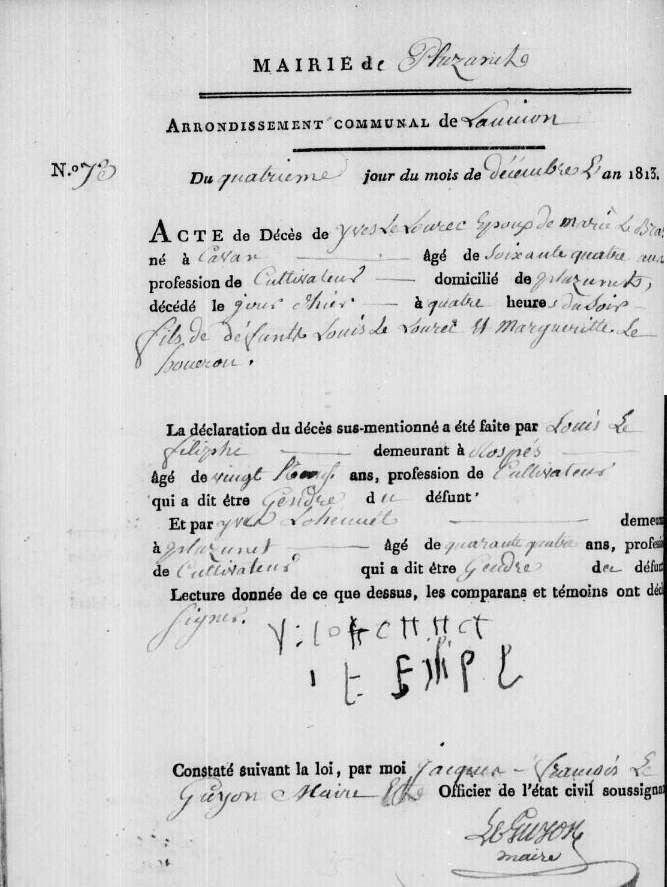 MAIRIE de Pluzunet
ARRONDISSEMENT COMMUNAL de Lannion
N.º 73
Du quatrieme jour du mois de décembre L'an 1813.
ACTE de Décès de yves Le Lourec Epoux de marie Le Bras
né à Cavan âgé de Soixante quatre ans
profession de Cultivateur domicilié de pluzunet,
décédé le jour d'hier à quatre heures du Soir
fils de défunts Louis Le Lourec Et Margueritte Le
houerou.
La déclaration du décès sus-mentionné a été faite par Louis Le
filiphe demeurant à
âgé de vingt Neuf ans, profession de Cultivateur
qui a dit être Gendre du défunt
Et par yves Lohennet demeu
à pluzunet âgé de quarante quatre ans, profess
de Cultivateur qui a dit être Gendre du défunt
Lecture donnée de ce que dessus, les comparans et témoins ont déc
Signer.
Constaté suivant la loi, par moi Jacques - françois Le
Guyon Maire Officier de l'état civil soussigna
Le Guyon
maire